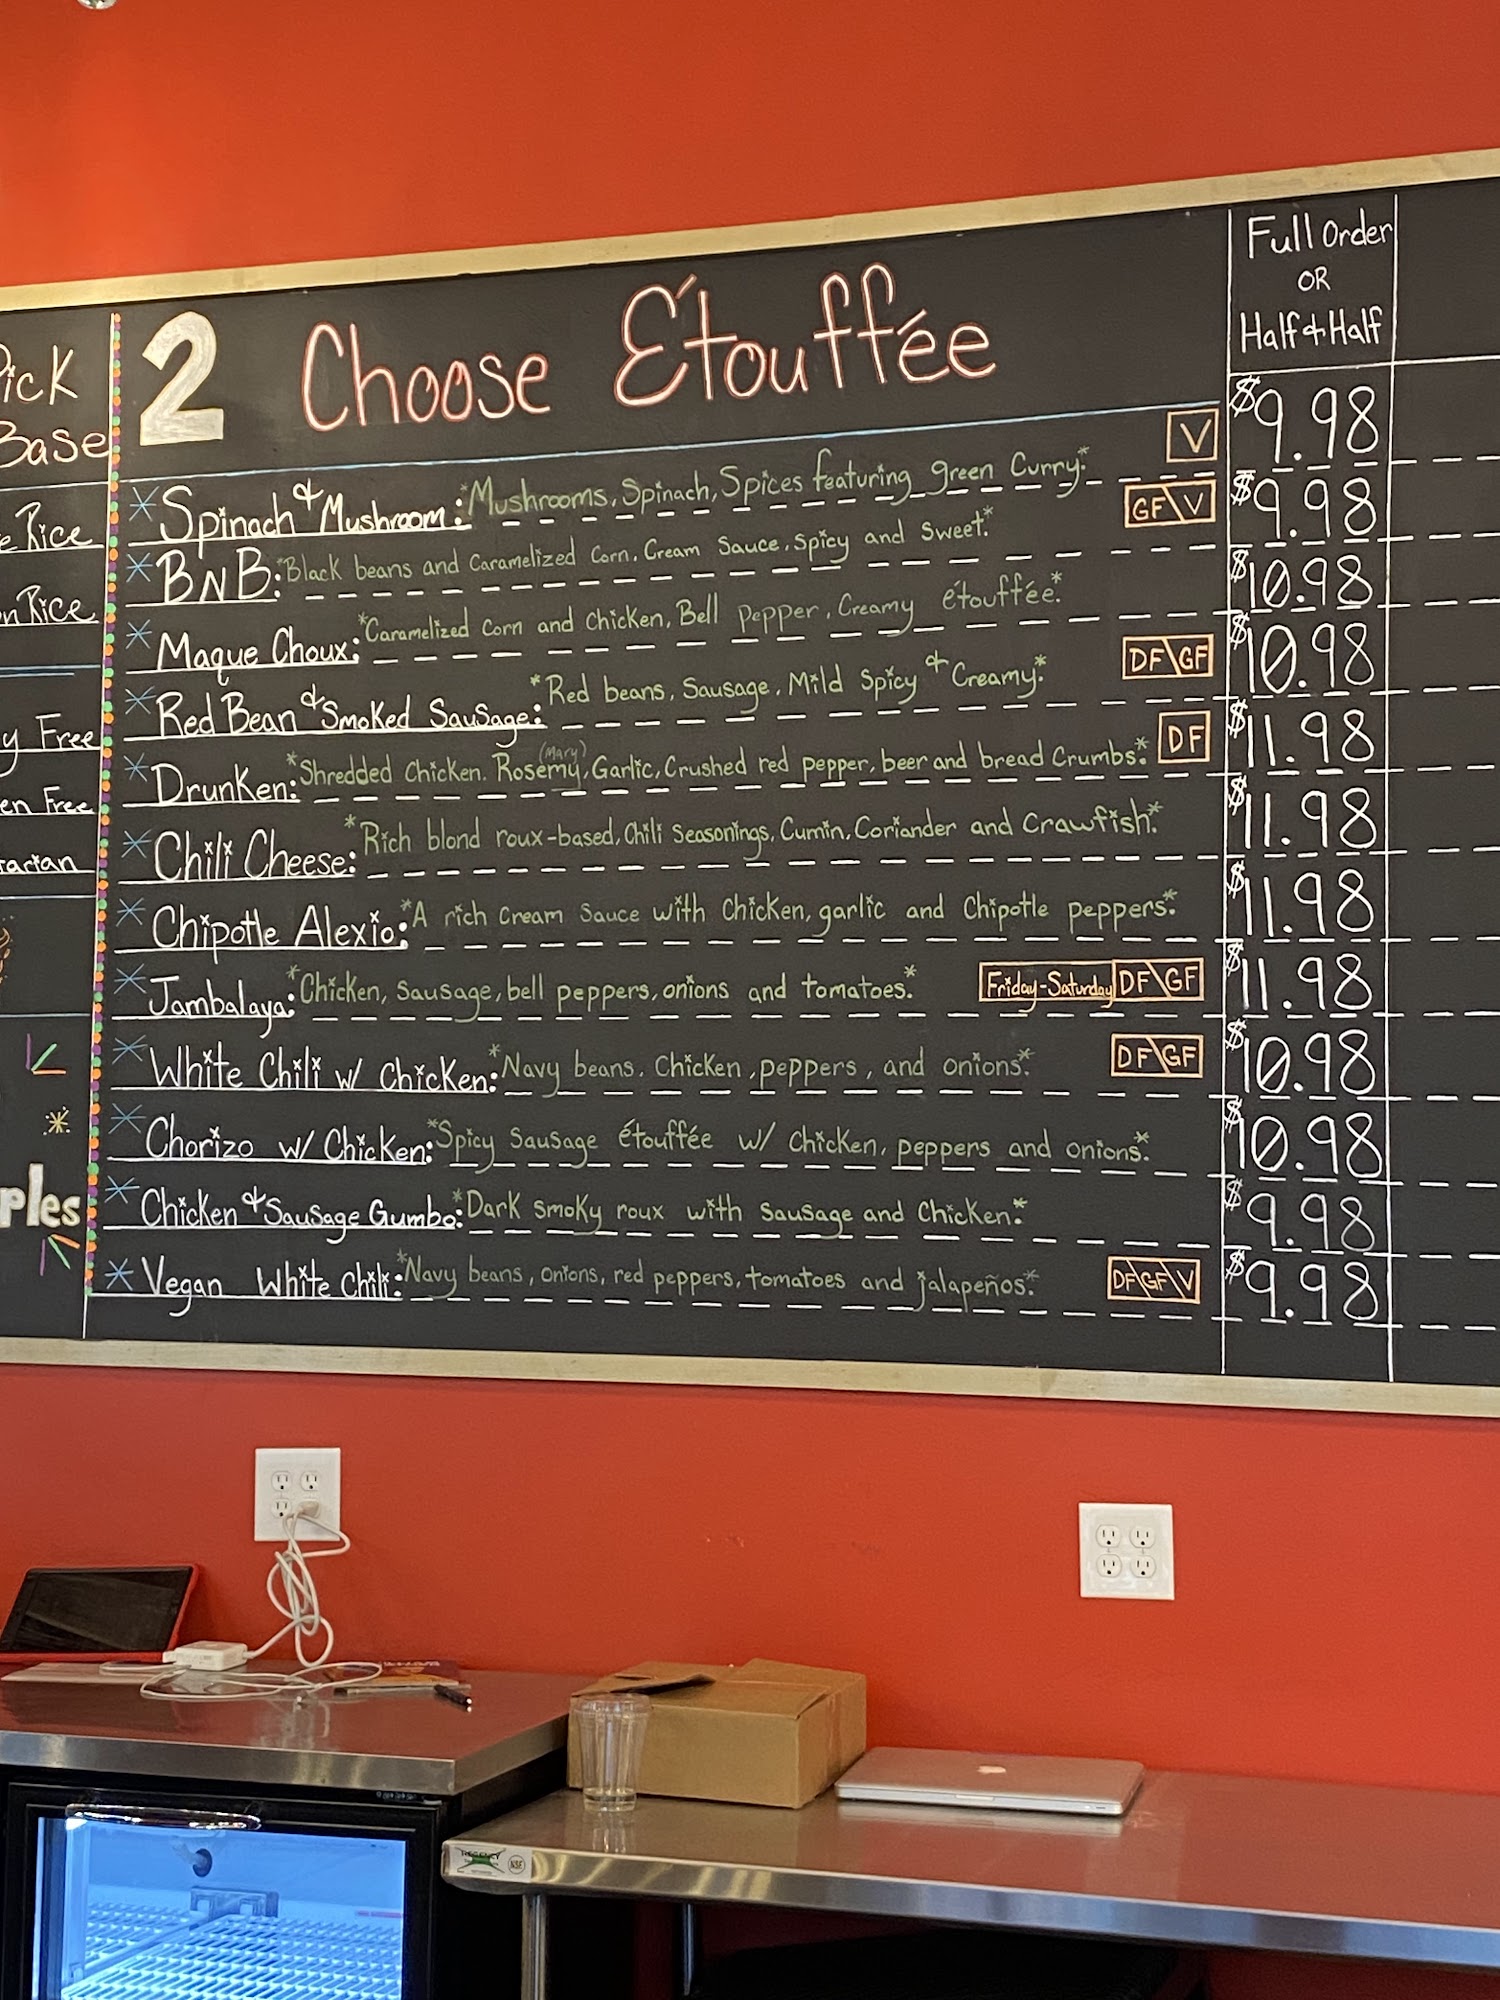 Pick
Base
Rice
Rice
y Free
en Free
tarian
ples
2 Choose Étouffée
Full Order
OR
Half & Half
* Spinach & Mushroom: *Mushrooms, Spinach, Spices featuring green Curry.* V $9.98
* BNB: *Black beans and Caramelized Corn, Cream Sauce, Spicy and Sweet.* GF\V $9.98
* Maque Choux: *Caramelized Corn and Chicken, Bell pepper, Creamy étouffée.* $10.98
* Red Bean & Smoked Sausage: *Red beans, Sausage, Mild Spicy & Creamy.* DF\GF $10.98
* Drunken: *Shredded Chicken. Rosemy (Mary), Garlic, Crushed red pepper, beer and bread Crumbs.* DF $11.98
* Chili Cheese: *Rich blond roux-based, Chili Seasonings, Cumin, Coriander and Crawfish.* $11.98
* Chipotle Alexio: *A rich Cream Sauce with Chicken, garlic and Chipotle peppers.* $11.98
* Jambalaya: *Chicken, Sausage, bell peppers, onions and tomatoes.* Friday-Saturday DF\GF $11.98
* White Chili w/ Chicken: *Navy beans, Chicken, peppers, and onions.* DF\GF $10.98
* Chorizo w/ Chicken: *Spicy Sausage étouffée w/ Chicken, peppers and onions.* $10.98
* Chicken & Sausage Gumbo: *Dark smoky roux with Sausage and Chicken.* $9.98
* Vegan White Chili: *Navy beans, onions, red peppers, tomatoes and jalapeños.* DF\GF\V $9.98
REGENCY
NSF